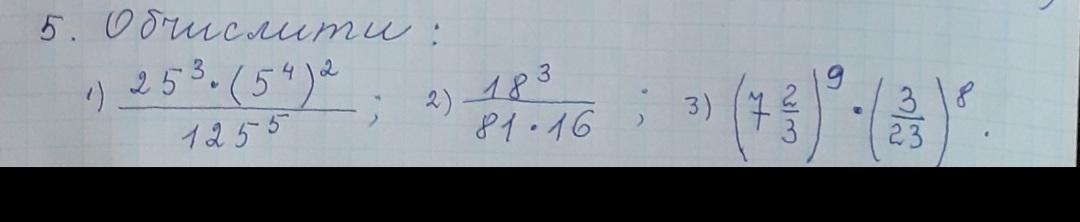 5. Обчислити :
1) 25³·(5⁴)² / 125⁵ ; 2) 18³ / 81·16 ; 3) (7 2/3)⁹·(3/23)⁸.